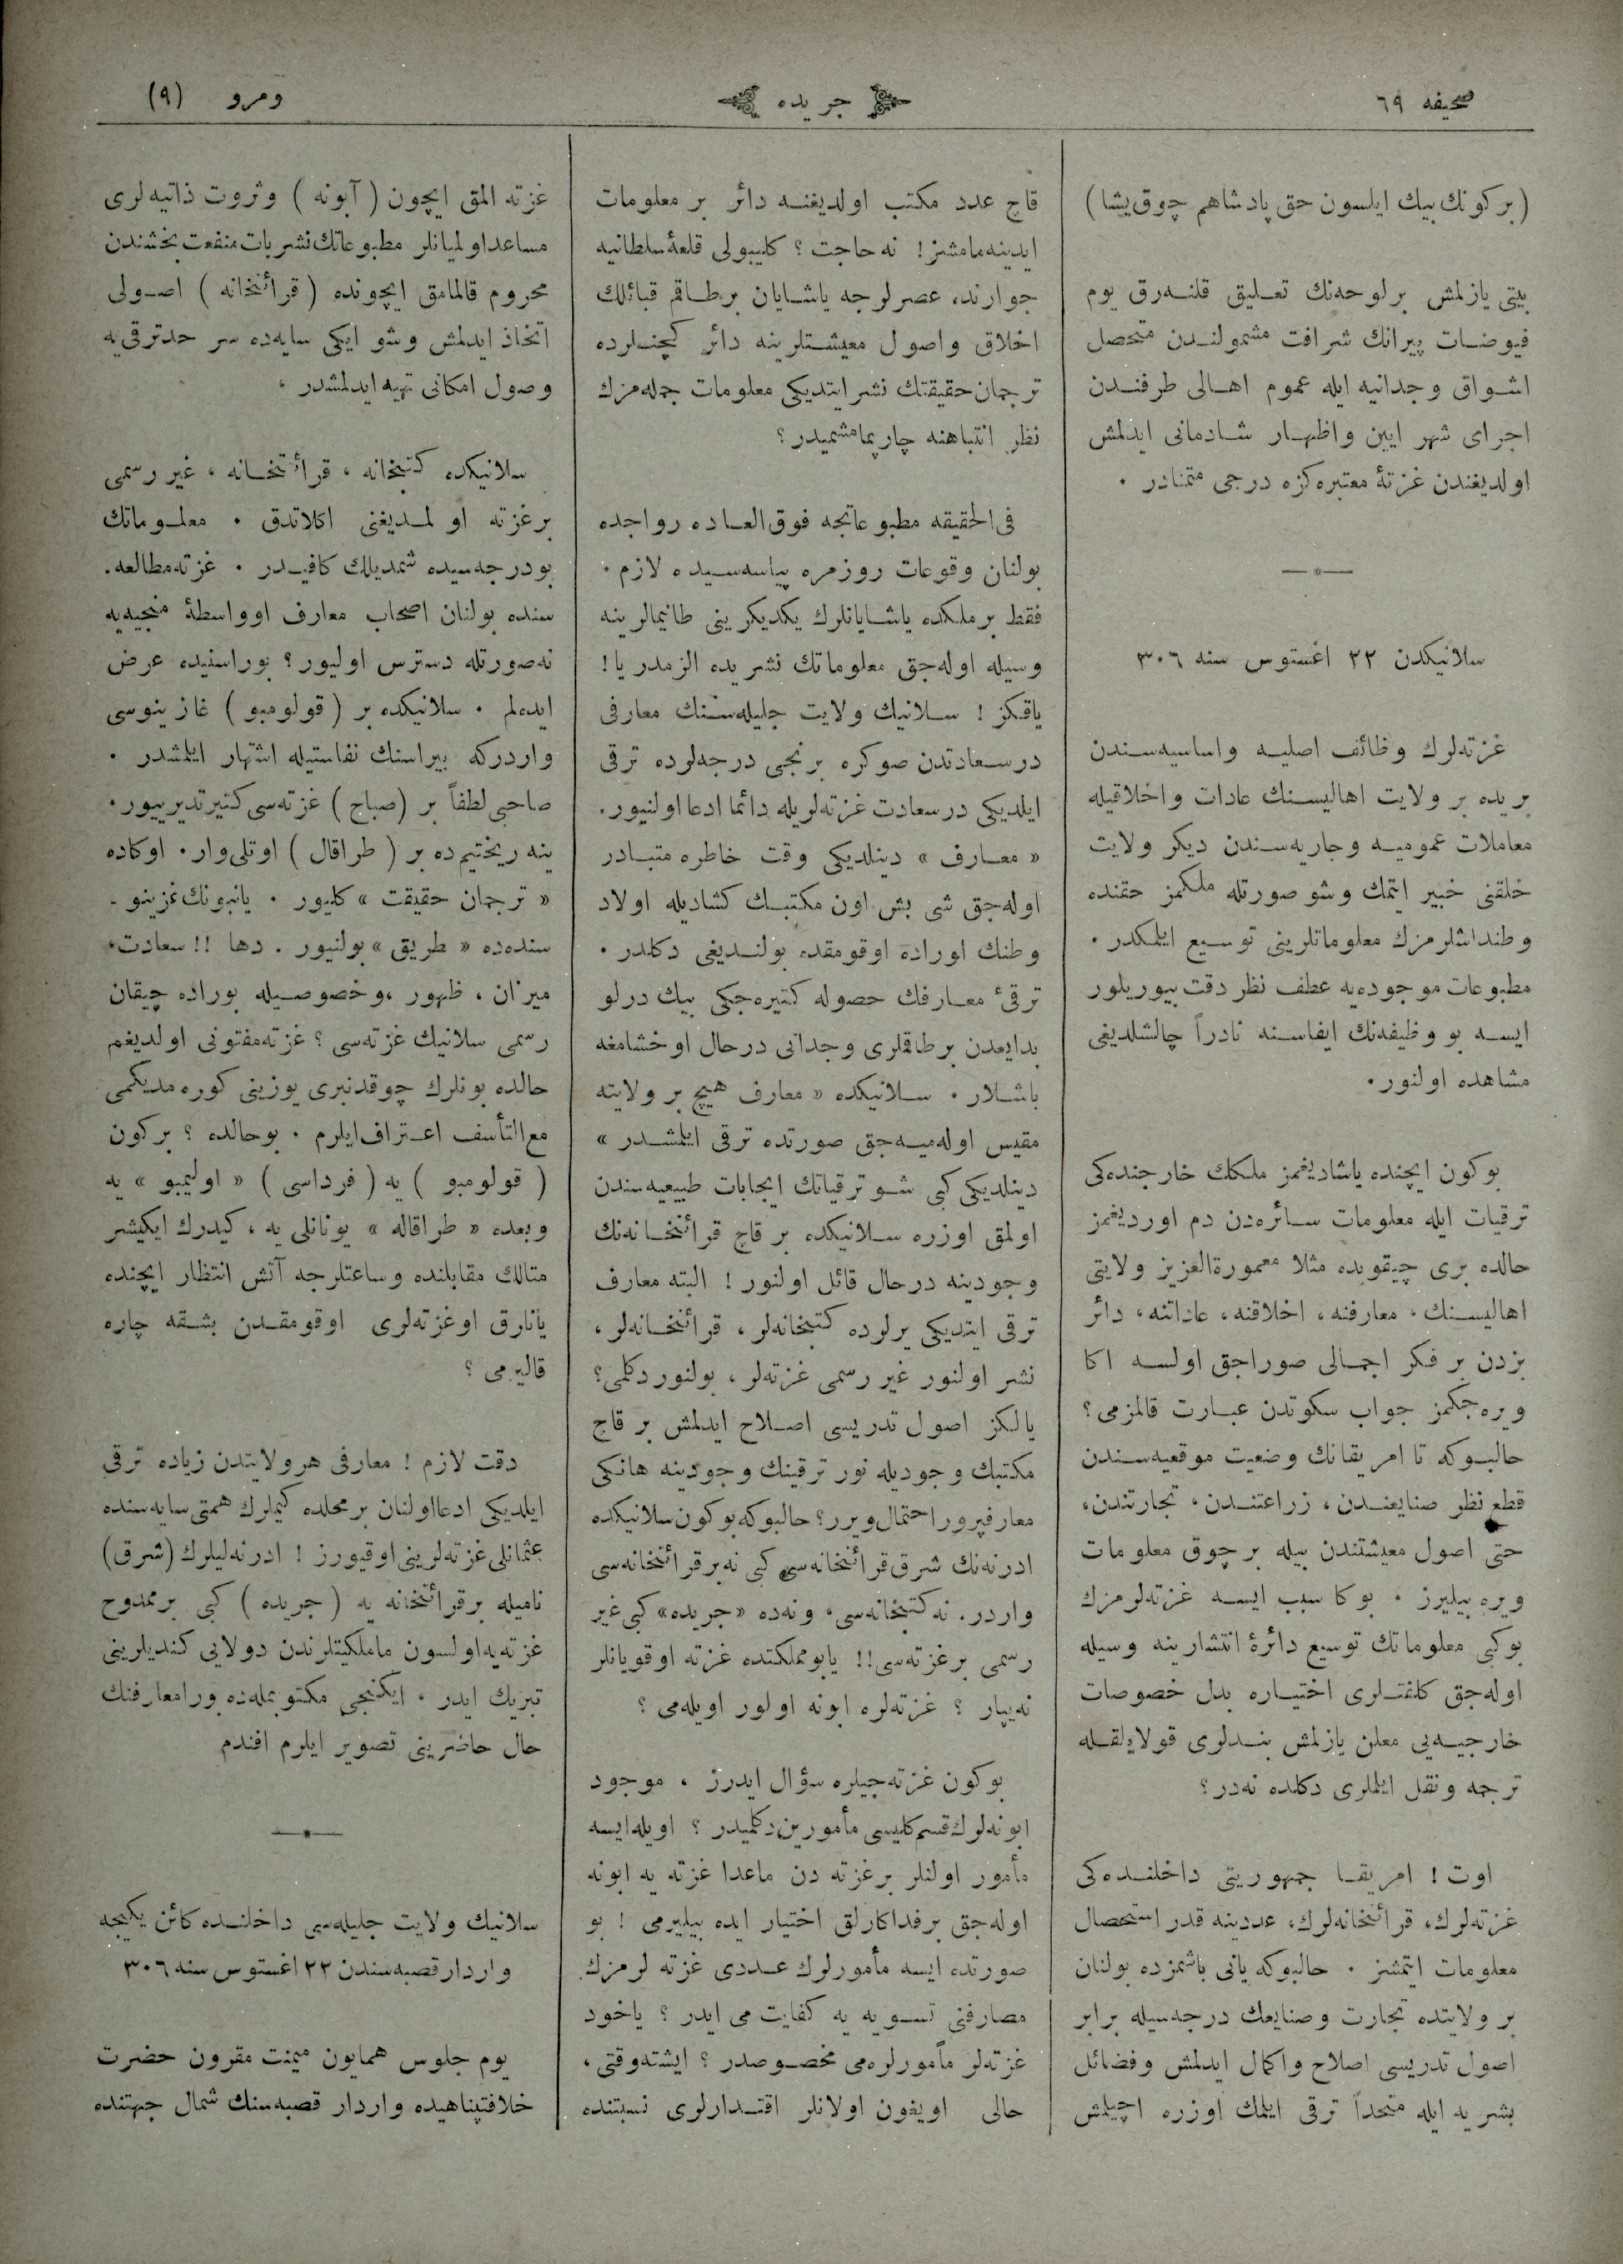 صحيفه ٦٩
جريده
ومرو (٩)
(بركونك بيك ايلسون حق پادشاهم چوق يشا)
بيتى يازلمش بر لوحه‌نك تعليق قلنه‌رق يوم
فيوضات پيرانك شرافت مشمولندن متحصل
اشواق وجدانيه ايله عموم اهالى طرفندن
اجراى شهر ايين واظهار شادمانى ايدلمش
اولديغندن غزتهٔ معتبره‌كزه درجى متمنادر ٠
سلانيكدن ٢٢ اغستوس سنه ٣٠٦
غزته‌لرك وظائف اصليه واساسيه‌سندن
بريده بر ولايت اهاليسنك عادات واخلاقيله
معاملات عموميه وجاريه‌سندن ديكر ولايت
خلقنى خبير ايتمك وشو صورتله ملكمز حقنده
وطنداشلرمزك معلوماتلرينى توسيع ايلمكدر ٠
مطبوعات موجوده‌يه عطف نظر دقت بيوريلور
ايسه بو وظيفه‌نك ايفاسنه نادراً چالشلديغى
مشاهده اولنور ٠
بوكون ايچنده ياشاديغمز ملكك خارجنده‌كى
ترقيات ايله معلومات سائره‌دن دم اورديغمز
حالده برى چيقوبده مثلا معمورة‌العزيز ولايتى
اهاليسنك ، معارفنه ، اخلاقنه ، عاداتنه ، دائر
بزدن بر فكر اجمالى صوراجق اولسه اكا
ويره‌جكمز جواب سكوتدن عبارت قالمزمى ؟
حالبوكه تا امريقانك وضعيت موقعيه‌سندن
قطع نظر صنايعندن ، زراعتندن ، تجارتندن ،
حتى اصول معيشتندن بيله بر چوق معلومات
ويره بيليرز ٠ بوكا سبب ايسه غزته‌لرمزك
بوكبى معلوماتك توسيع دائرهٔ انتشارينه وسيله
اوله‌جق كلفتلرى اختياره بدل خصوصات
خارجيه‌يى معلن يازلمش بندلرى قولايلقله
ترجمه ونقل ايلملرى دكلده نه‌در ؟
اوت ! امريقا جمهوريتى داخلنده‌كى
غزته‌لرك ، قرائتخانه‌لرك ، عددينه قدر استحصال
معلومات ايتمشز ٠ حالبوكه يانى باشمزده بولنان
بر ولايتده تجارت وصنايعك درجه‌سيله برابر
اصول تدريسى اصلاح واكمال ايدلمش وفضائل
بشريه ايله متحداً ترقى ايلمك اوزره اچيلمش
قاچ عدد مكتب اولديغنه دائر بر معلومات
ايدينه‌مامشز ! نه حاجت ؟ كليبولى قلعهٔ سلطانيه
جوارند، عصرلرجه ياشايان برطاقم قبائلك
اخلاق واصول معيشتلرينه دائر كچنلرده
ترجمان حقيقتك نشر ايتديكى معلومات جمله‌مزك
نظر انتباهنه چارپمامشميدر ؟
فى‌الحقيقه مطبوعاتجه فوق‌العاده رواجده
بولنان وقوعات روزمره پياسه‌سيده لازم ٠
فقط بر ملكده ياشايانلرك يكديكرينى طانيمالرينه
وسيله اوله‌جق معلوماتك نشريده الزمدر يا !
ياقكز ! سلانيك ولايت جليله‌سنك معارفى
درسعادتدن صوكره برنجى درجه‌لرده ترقى
ايلديكى درسعادت غزته‌لريله دائما ادعا اولنيور.
« معارف » دينلديكى وقت خاطره متبادر
اوله‌جق شى بش اون مكتبك كشاديله اولاد
وطنك اوراده اوقومقده بولنديغى دكلدر ٠
ترقئ معارفك حصوله كتيره‌جكى بيك درلو
بدايعدن برطاقملرى وجدانى درحال اوخشامغه
باشلار ٠ سلانيكده « معارف هيچ بر ولايته
مقيس اوله‌ميه‌جق صورتده ترقى ايلمشدر »
دينلديكى كبى شو ترقياتك ايجابات طبيعيه‌سندن
اولمق اوزره سلانيكده بر قاچ قرائتخانه‌نك
وجودينه درحال قائل اولنور ! البته معارف
ترقى ايتديكى يرلرده كتبخانه‌لر ، قرائتخانه‌لر ،
نشر اولنور غير رسمى غزته‌لر ، بولنور دكلمى ؟
يالكز اصول تدريسى اصلاح ايدلمش بر قاچ
مكتبك وجوديله نور ترقينك وجودينه هانكى
معارفپرور احتمال ويرر ؟ حالبوكه بوكون سلانيكده
ادرنه‌نك شرق قرائتخانه‌سى كبى نه برقرائتخانه‌سى
واردر. نه كتبخانه‌سى ، ونه‌ده «جريده» كبى غير
رسمى بر غزته‌سى !! يا بو مملكتده غزته اوقويانلر
نه‌يپار ؟ غزته‌لره ابونه اولور اويله‌مى ؟
بوكون غزته‌جيلره سؤال ايدرز ، موجود
ابونه‌لرك قسم كليسى مأمورين دكلميدر ؟ اويله ايسه
مأمور اولنلر بر غزته دن ماعدا غزته يه ابونه
اوله‌جق بر فداكارلق اختيار ايده بيليرمى ! بو
صورتده ايسه مأمورلرك عددى غزته لرمزك
مصارفنى تسويه يه كفايت مى ايدر ؟ ياخود
غزته‌لر مأمورلره‌مى مخصوصدر ؟ ايشته‌وقتى ،
حالى اويغون اولانلر اقتدارلرى نسبتنده
غزته المق ايچون ( آبونه ) وثروت ذاتيه‌لرى
مساعد اولميانلر مطبوعاتك نشريات منفعت بخشندن
محروم قالمامق ايچونده ( قرائتخانه ) اصولى
اتخاذ ايدلمش وشو ايكى سايه‌ده سر حدترقى‌يه
وصول امكانى تهيه ايدلمشدر ،
سلانيكده كتبخانه ، قرائتخانه ، غير رسمى
بر غزته اولمديغنى اكلاتدق ٠ معلوماتك
بودرجه‌سيده شمديلك كافيدر ٠ غزته مطالعه.
سنده بولنان اصحاب معارف اوواسطهٔ منجيه‌يه
نه صورتله دسترس اوليور ؟ بوراسنيده عرض
ايده‌لم ٠ سلانيكده بر ( قولومبو ) غازينوسى
واردركه بيراسنك نفاستيله اشتهار ايلمشدر ٠
صاحبى لطفاً بر (صباح ) غزته‌سى كتيرتديرييور ٠
ينه ريختيم ده بر ( طراقال ) اوتلى وار ٠ اوكاده
« ترجمان حقيقت » كليور ٠ يانبونك غزينو -
سنده‌ده « طريق » بولنيور . دها !! سعادت ،
ميزان ، ظهور ،وخصوصيله بوراده چيقان
رسمى سلانيك غزته‌سى ؟ غزته مفتونى اولديغم
حالده بونلرك چوقدنبرى يوزينى كوره‌مديكمى
مع‌التأسف اعتراف ايلرم ٠ بوحالده ؟ بركون
( قولومبو ) يه ( فرداسى ) « اوليمبو » يه
وبعده « طراقاله » يونانلى يه ، كيدرك ايكيشر
متالك مقابلنده وساعتلرجه آتش انتظار ايچنده
يانارق اوغزته‌لرى اوقومقدن بشقه چاره
قاليرمى ؟
دقت لازم ! معارفى هرولايتدن زياده ترقى
ايلديكى ادعا اولنان بر محلده كيملرك همتى سايه‌سنده
عثمانلى غزته‌لرينى اوقيورز ! ادرنه‌ليلرك (شرق)
ناميله بر قرائتخانه يه ( جريده ) كبى بر ممدوح
غزته‌يه اولسون ماملكيتلرندن دولايى كنديلرينى
تبريك ايدر ٠ ايكنجى مكتوبمله‌ده بورا معارفنك
حال حاضرينى تصوير ايلرم افندم
سلانيك ولايت جليله‌سى داخلنده كائن يكيجه
واردار قصبه‌سندن ٢٢ اغستوس سنه ٣٠٦
يوم جلوس همايون ميمنت مقرون حضرت
خلافتپناهيده واردار قصبه‌سنك شمال جهتنده